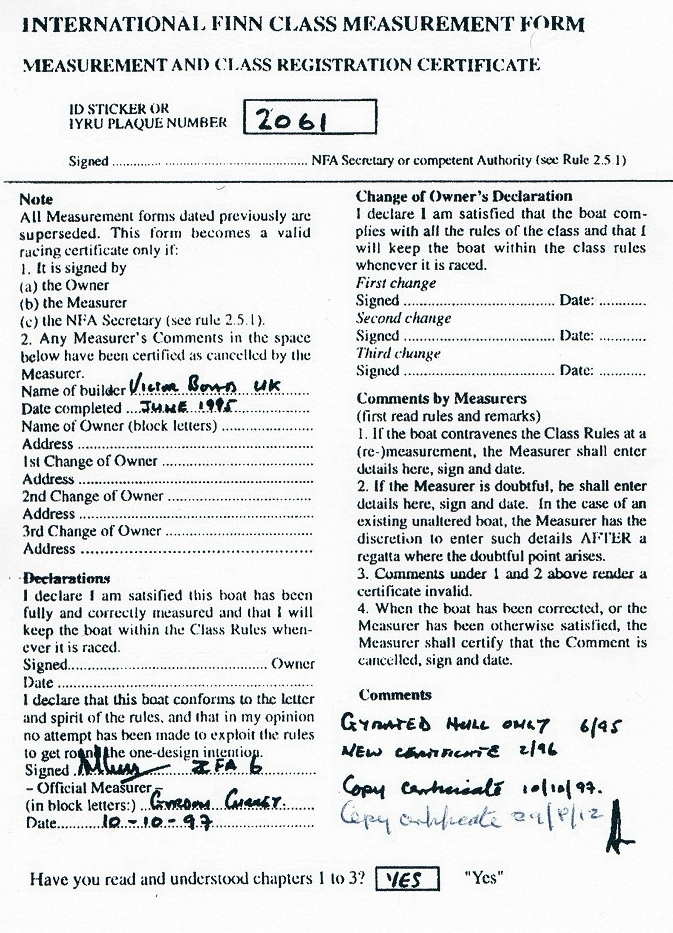 INTERNATIONAL FINN CLASS MEASUREMENT FORM
MEASUREMENT AND CLASS REGISTRATION CERTIFICATE
ID STICKER OR
IYRU PLAQUE NUMBER 2061
Signed .......... NFA Secretary or competent Authority (see Rule 2.5.1)
Note
All Measurement forms dated previously are
superseded. This form becomes a valid
racing certificate only if:
1. It is signed by
(a) the Owner
(b) the Measurer
(c) the NFA Secretary (see rule 2.5.1).
2. Any Measurer's Comments in the space
below have been certified as cancelled by the
Measurer.
Name of builder Victor Boats UK
Date completed ....JUNE 1995
Name of Owner (block letters) ..........
Address ..........
1st Change of Owner ..........
Address ..........
2nd Change of Owner ..........
Address ..........
3rd Change of Owner ..........
Address ..........
Declarations
I declare I am satsified this boat has been
fully and correctly measured and that I will
keep the boat within the Class Rules when-
ever it is raced.
Signed.......... Owner
Date ..........
I declare that this boat conforms to the letter
and spirit of the rules, and that in my opinion
no attempt has been made to exploit the rules
to get round the one-design intention.
Signed IFA 6
– Official Measurer –
(in block letters:) GORDON
Date..........10-10-97
Change of Owner's Declaration
I declare I am satisfied that the boat com-
plies with all the rules of the class and that I
will keep the boat within the class rules
whenever it is raced.
First change
Signed .......... Date: ..........
Second change
Signed .......... Date: ..........
Third change
Signed .......... Date: ..........
Comments by Measurers
(first read rules and remarks)
1. If the boat contravenes the Class Rules at a
(re-)measurement, the Measurer shall enter
details here, sign and date.
2. If the Measurer is doubtful, he shall enter
details here, sign and date. In the case of an
existing unaltered boat, the Measurer has the
discretion to enter such details AFTER a
regatta where the doubtful point arises.
3. Comments under 1 and 2 above render a
certificate invalid.
4. When the boat has been corrected, or the
Measurer has been otherwise satisfied, the
Measurer shall certify that the Comment is
cancelled, sign and date.
Comments
GYRATED HULL ONLY 6/95
NEW CERTIFICATE 2/96
Copy certificate 10/10/97.
Copy certificate 29/8/12
Have you read and understood chapters 1 to 3? YES "Yes"